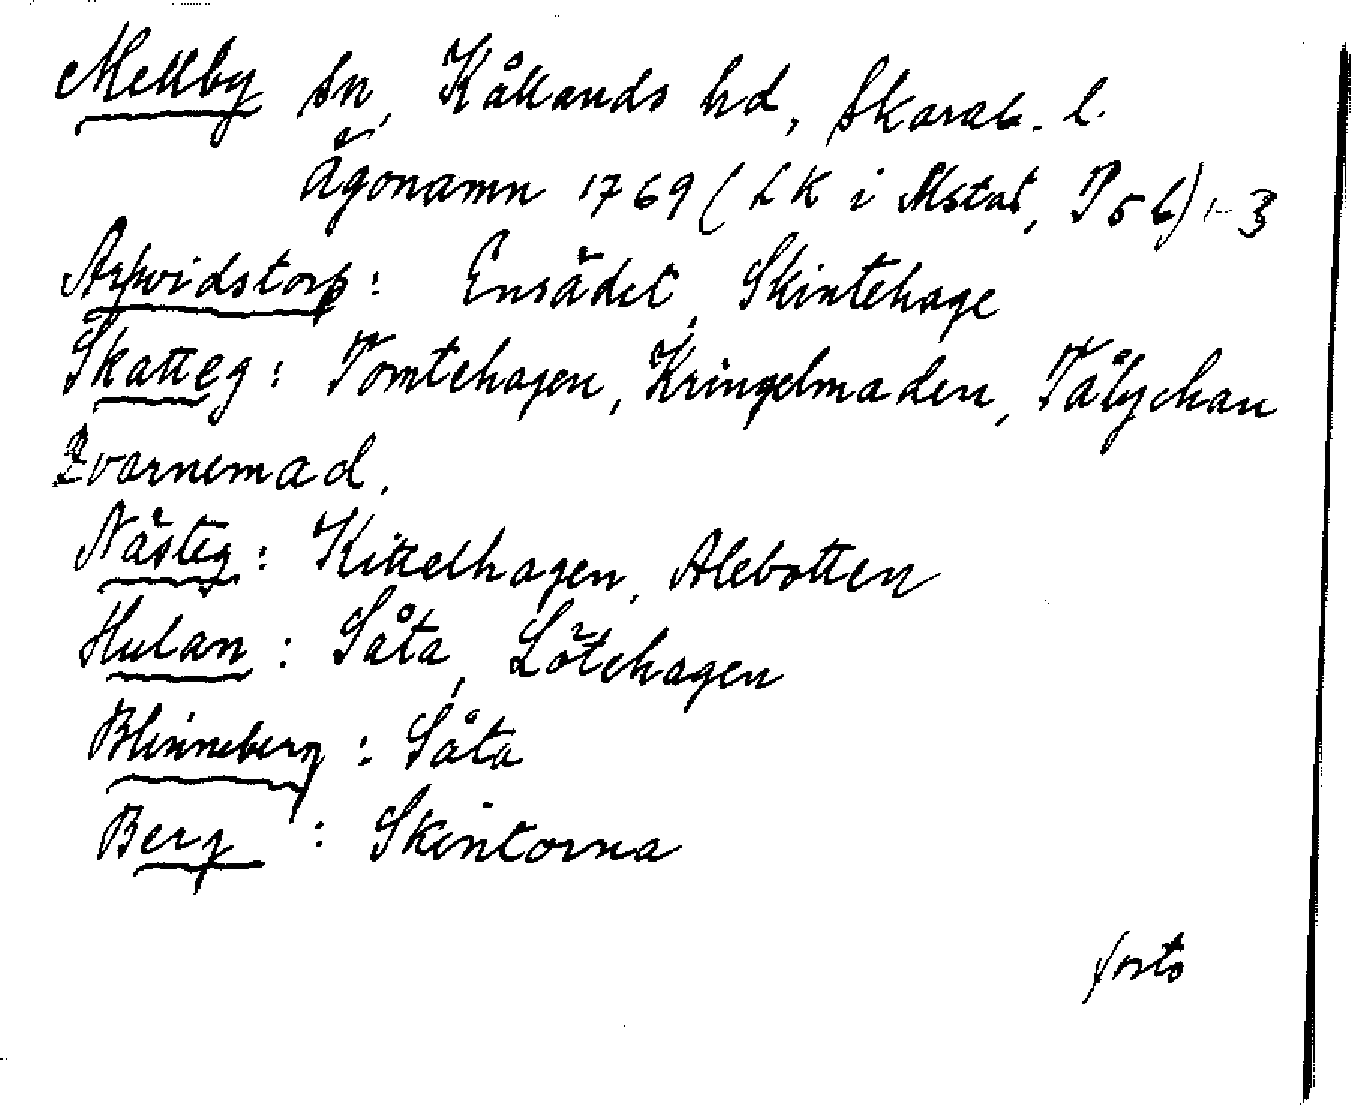 Mellby sn, Kållands hd, Skarab. l.
Ägonamn 1769 (LK i Mstat, P56) 1-3
Arfwidstorp: Ensädet, Skintehage
Skatteg: Tomtehagen, Kringelmaden,
Qvarnemad.
Nästeg: Kittelhagen, Alebotten
Hulan: Såta, Lötehagen
Blinneberg: Såta
Berg: Skintorna
forts